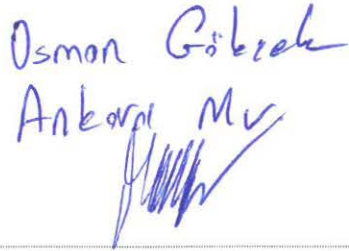 Osman Gökçek
Ankara Mv.